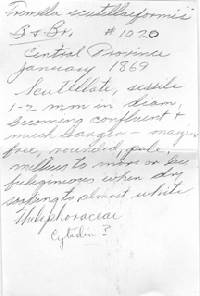 Tremella scutellaeformis
B & Br. #1020
Central Province
January 1869
Scutellate, sessile
1-2 mm in diam,
becoming confluent &
much larger - margin
free, rounded, pale,
to more or less
fuliginous when dry
soaking to almost white
Thelephoraceae
Cytidia?